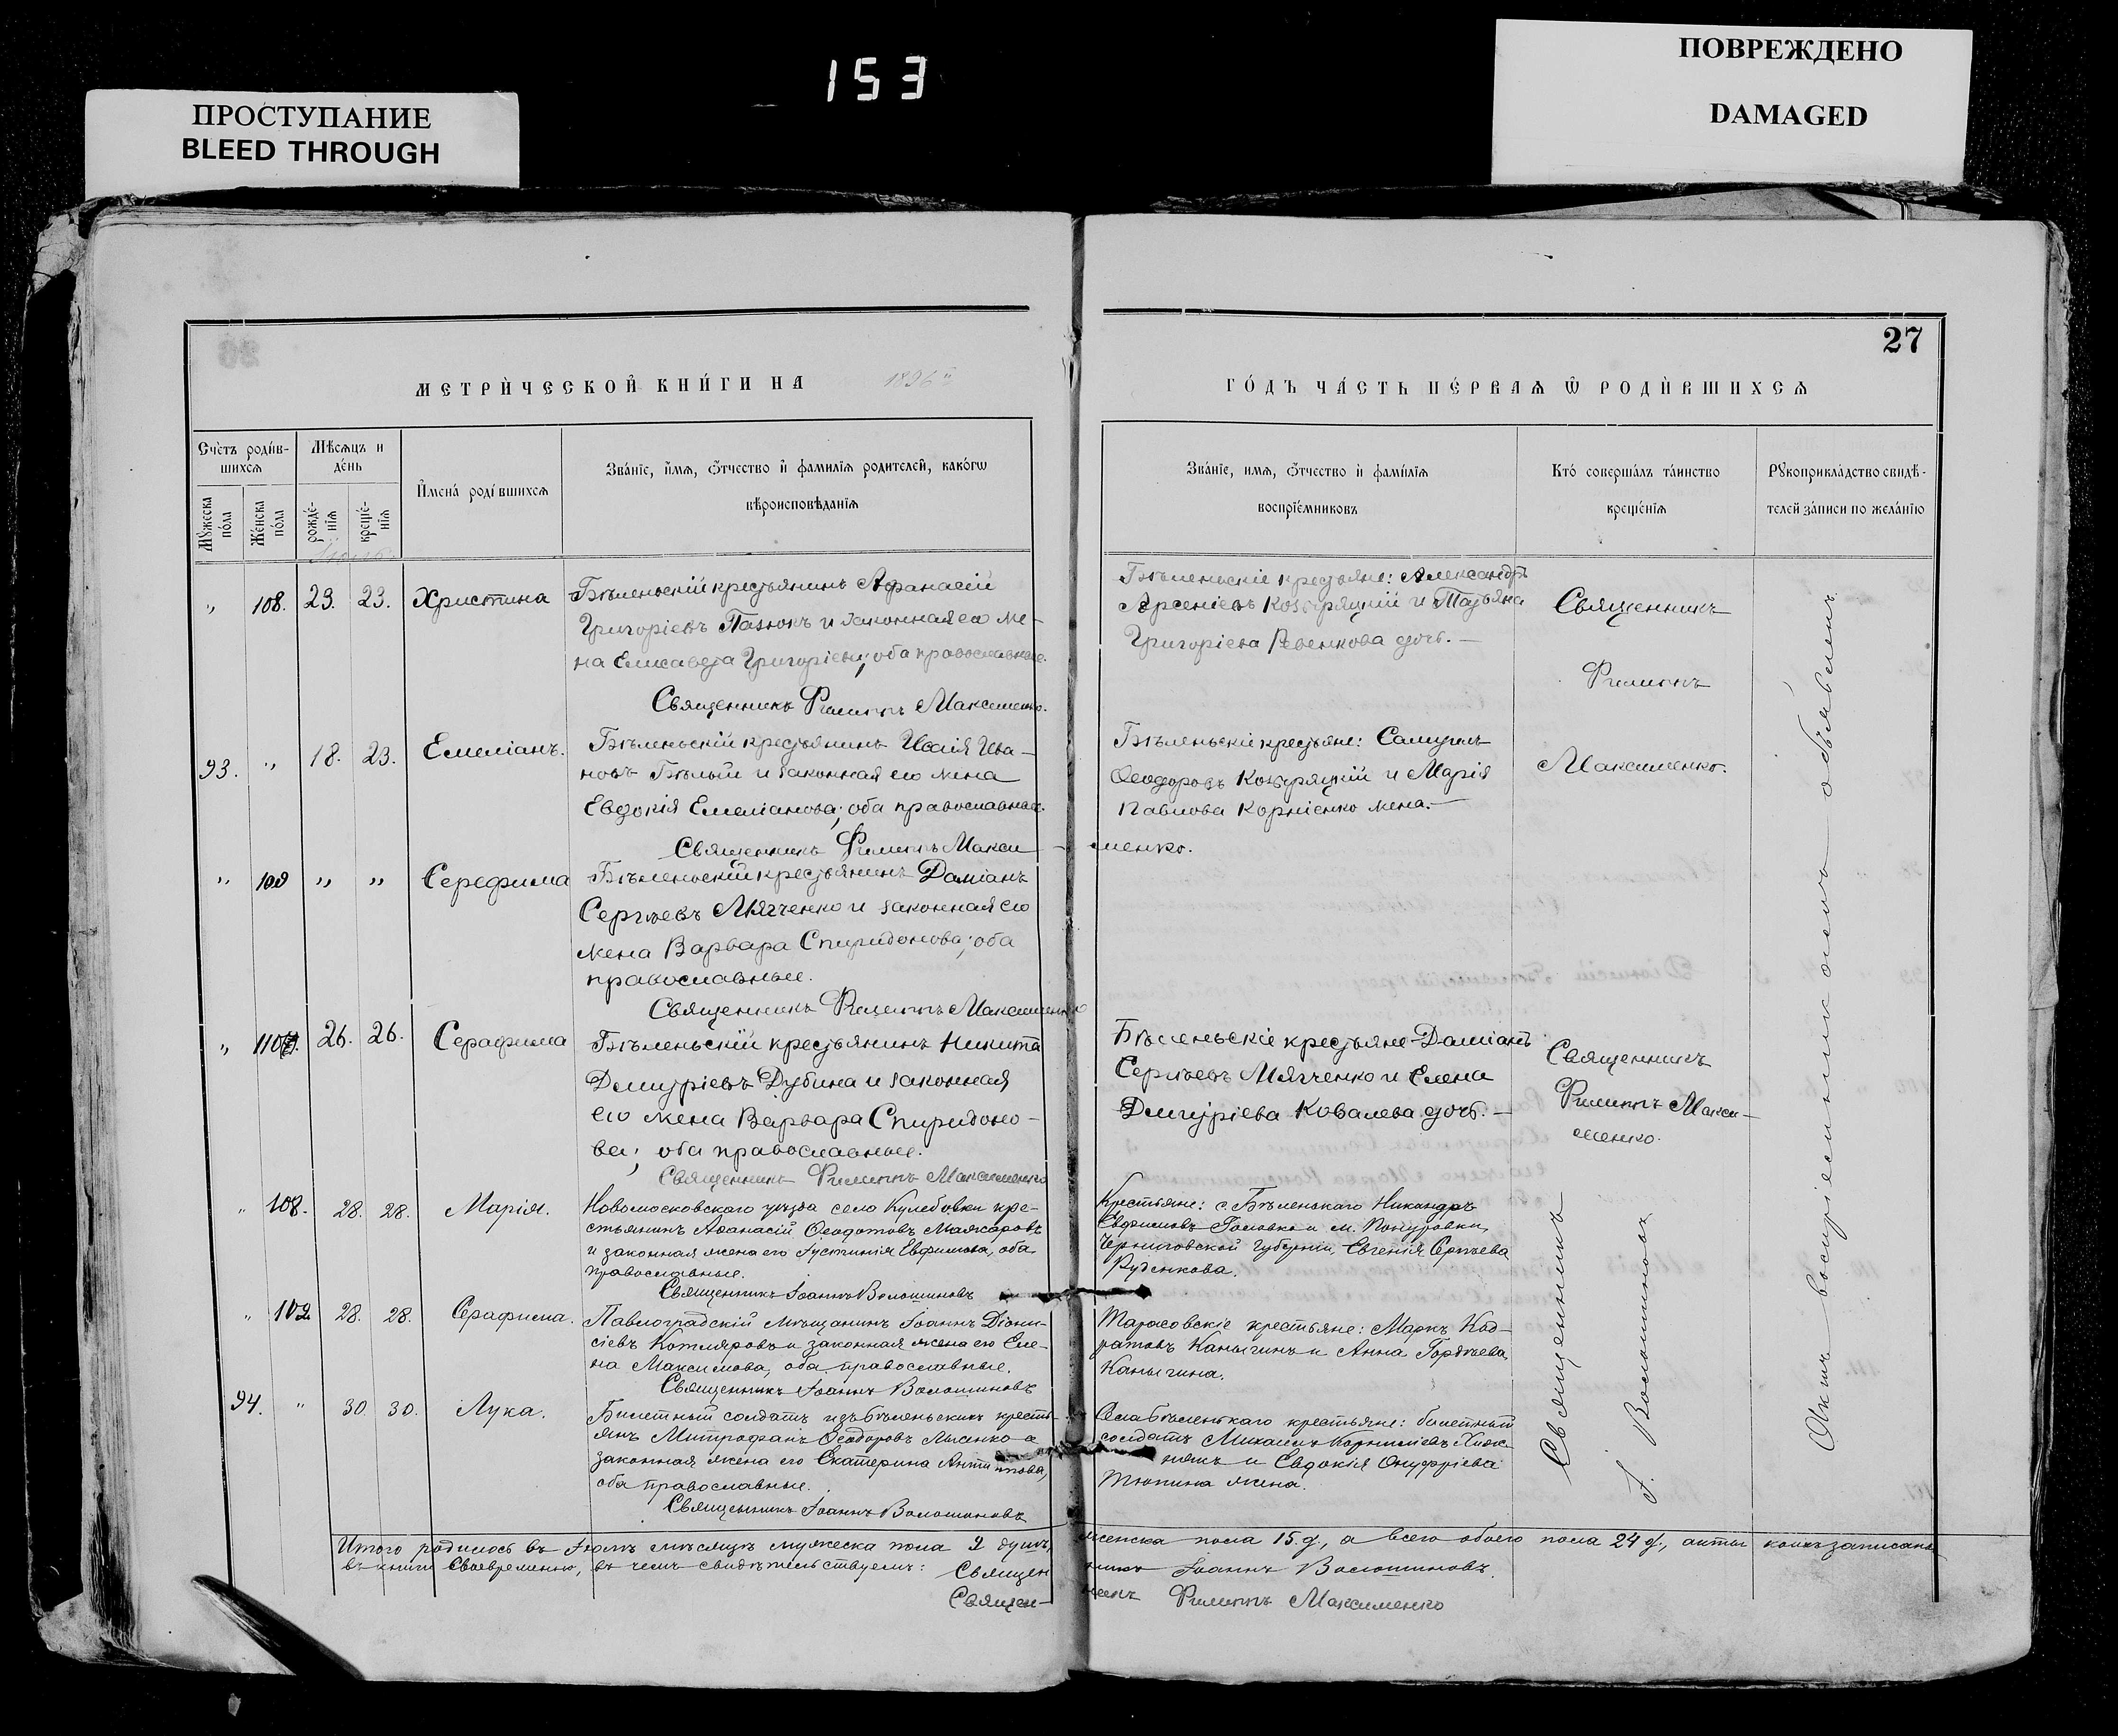 153
ПРОСТУПАНИЕ
BLEED THROUGH
ПОВРЕЖДЕНО
DAMAGED
27
МЕТРИ́ЧЕСКОЙ КНИ́ГИ НА 1896
ГО́ДЪ ЧА́СТЬ ПЕ́РВАѦ Ѿ РОДИ́ВШИХСѦ
Счетъ роди́в-
шихсѧ
Мѣсѧцъ и
де́нь
И҆мена́ роди́вшихсѧ
Зва́нїе, и҆мѧ, ѻ҆́тчество и҆ фамилїѧ родителей, како́гѡ
вѣроисповѣданїѧ
Зва́нїе, имѧ, ѻ҆́тчество и҆ фами́лїѧ
воспрїе́мниковъ
Кто́ соверша́лъ та́инство
креще́нїѧ
Рꙋкоприкла́дство свидѣ́-
телей за́писи по жела́нїю
Мꙋжеска
по́ла
Же́нска
по́ла
рожде́-
нїѧ
креще́-
нїѧ
" 108. 23. 23. Христина
Бѣленьскій крестьянинъ Афанасій
Григоріевъ Пазюкъ и законная его же-
на Елисавета Григоріева; оба православные.
Священникъ Филиппъ Максименко.
Бѣленьскіе крестьяне: Александръ
Арсеніевъ Козиряцкій и Татьяна
Григоріева Ревенкова дочь. —
Священникъ
Филиппъ
Максименко.
93. " 18. 23. Емеліанъ.
Бѣленьскій крестьянинъ Исаія Ива-
новъ Бѣлый и законная его жена
Евдокія Емеліанова; оба православные.
Священникъ Филиппъ Макси-менко.
Бѣленьскіе крестьяне: Самуилъ
Ѳеодоровъ Козиряцкій и Марія
Павлова Корніенко жена. —
" 109 " " Серефима
Бѣленьскій крестьянинъ Даміанъ
Сергѣевъ Мягченко и законная его
жена Варвара Спиридонова; оба
православные.
Священникъ Филиппъ Максименко
" 110. 26. 26. Серафима
Бѣленьскій крестьянинъ Никита
Димитріевъ Дубина и законная
его жена Варвара Спиридоно-
ва; оба православные.
Священникъ Филиппъ Максименко
Бѣленьскіе крестьяне Даміанъ
Сергѣевъ Мягченко и Елена
Димитріева Ковалева дочь. —
Священникъ
Филиппъ Макси-
менко.
" 108. 28. 28. Марія.
Новомосковского уѣзда село Кулебовки кре-
стьянинъ Аѳанасій Ѳеодотовъ
и законная жена его Іустинія Евфимова, оба
православные.
Священникъ Іоаннъ Волошиновъ
Крестьяне: с. Бѣленькаго Никандръ
Евфимовъ Головко и м. Понуровки,
Черниговской губерніи, Евгенія Сергѣева
Руденкова.
" 109 28. 28. Серафима.
Павлоградскій мѣщанинъ Іоаннъ Діони-
сіевъ Котляровъ и законная жена его Еле-
на Максимова, оба православные.
Священникъ Іоаннъ Волошиновъ
Тарасовскіе крестьяне: Маркъ Код-
ратовъ Каныгинъ и Анна Гордѣева
Каныгина.
94. " 30. 30. Лука.
Билетный солдатъ изъ бѣленьскихъ кресть-
янъ Митрофанъ Ѳеодоровъ Лысенко и
законная жена его Екатерина Антипова,
оба православные.
Священникъ Іоаннъ Волошиновъ
Села Бѣленькаго крестьяне: билетный
солдатъ Михаилъ Корниліевъ
и Евдокія Онуфріева
Тюпина жена.
Священникъ
І. Волошиновъ
Актъ воспріемникомъ объявленъ
Итого родилось въ Іюлѣ мѣсяцѣ мужеска пола 9 душъ, женска пола 15 д., а всего обоего пола 24 д., акты коихъ записаны
въ книги своевременно, въ чемъ свидѣтельствуемъ: Священникъ Іоаннъ Волошиновъ.
Священникъ Филиппъ Максименко